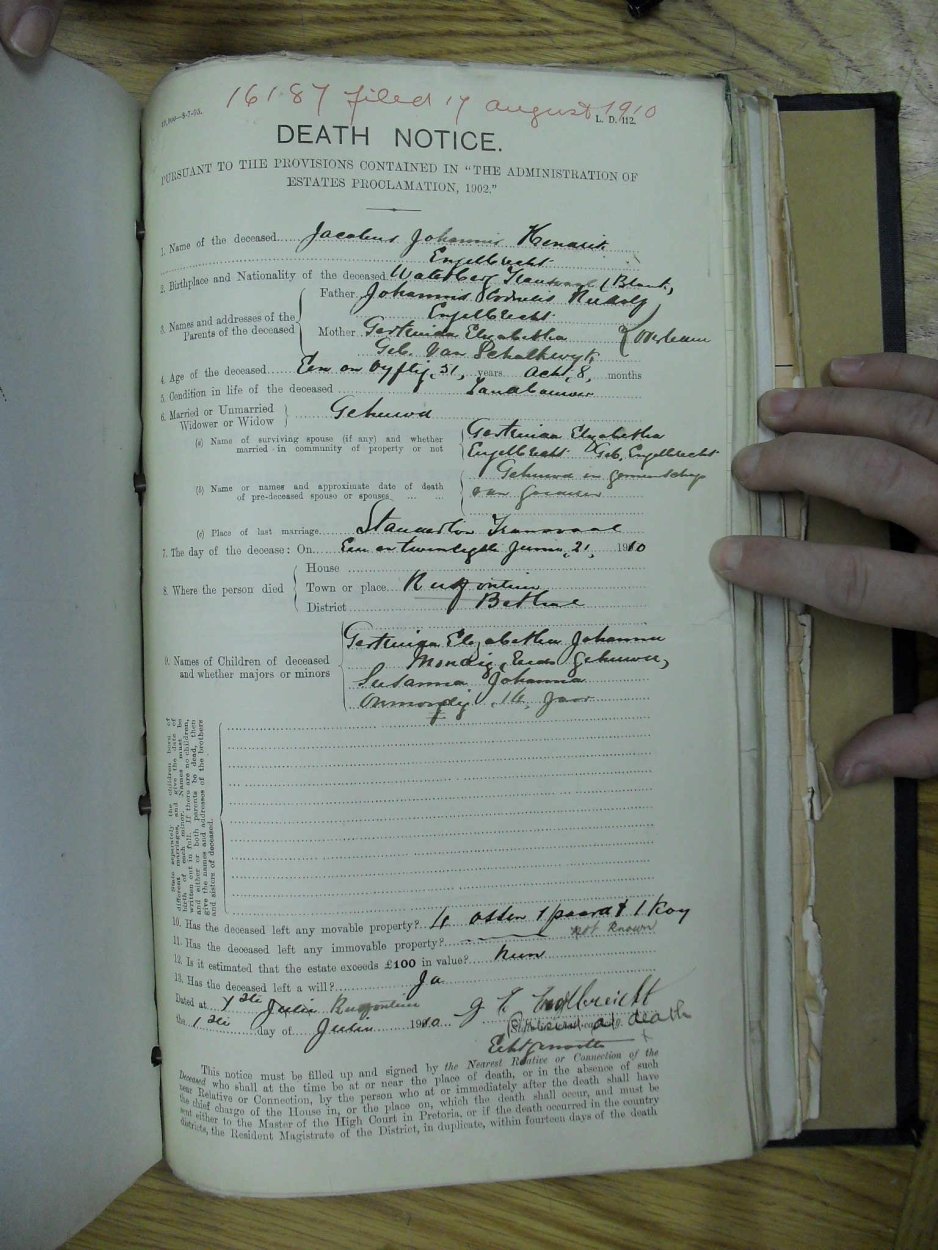 16187 filed 17 august 1910
L. D. 112.
DEATH NOTICE.
PURSUANT TO THE PROVISIONS CONTAINED IN "THE ADMINISTRATION OF
ESTATES PROCLAMATION, 1902."
1. Name of the deceased Jacobus Johannis Hendrik
Engelbrecht
2. Birthplace and Nationality of the deceased Waterberg Transvaal (Blank)
3. Names and addresses of the Parents of the deceased
Father Johannes Rudolf
Engelbrecht
Mother Gertruida Elizabetha Overleden
Geb. Van Schalkwyk
4. Age of the deceased Een en vyftig, 51, years Acht, 8, months
5. Condition in life of the deceased Landbouwer
6. Married or Unmarried Widower or Widow Gehuwd
(a) Name of surviving spouse (if any) and whether married in community of property or not
Gertruida Elizabetha
Engelbrecht Geb. Engelbrecht
Gehuwd in gemeenschap
van goederen
(b) Name or names and approximate date of death of pre-deceased spouse or spouses
(c) Place of last marriage Standerton Transvaal
7. The day of the decease: On Een en twintigste Junie, 21, 1910
8. Where the person died
House
Town or place Rugfontein
District Bethal
9. Names of Children of deceased and whether majors or minors
Gertruida Elizabetha Johanna
Mondig, Gehuwd,
Susanna Johanna
Onmondig 16 Jaar
State separately the children, born of different marriages, and give the date of birth of each minor. Names must be written out in full. If there are no children, and either or both parents be dead, then give the names and addresses of the brothers and sisters of deceased.
10. Has the deceased left any movable property? 4 Ossen 1 paard & 1 Koy
11. Has the deceased left any immovable property? not known
12. Is it estimated that the estate exceeds £100 in value? Neen
13. Has the deceased left a will? Ja
Dated at 1ste Julie Rugfontein
the 1ste day of Julie 1910. Engelbrecht
Present at death
Echtgenoote
This notice must be filled up and signed by the Nearest Relative or Connection of the
Deceased who shall at the time be at or near the place of death, or in the absence of such
near Relative or Connection, by the person who at or immediately after the death shall have
the chief charge of the House in, or the place on, which the death shall occur, and must be
sent either to the Master of the High Court in Pretoria, or if the death occurred in the country
districts, the Resident Magistrate of the District, in duplicate, within fourteen days of the death